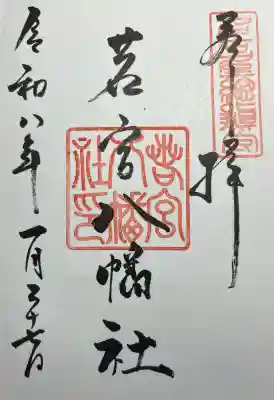 奉拝
若宮八幡社
令和八年一月二十七日
若宮
八幡
社印